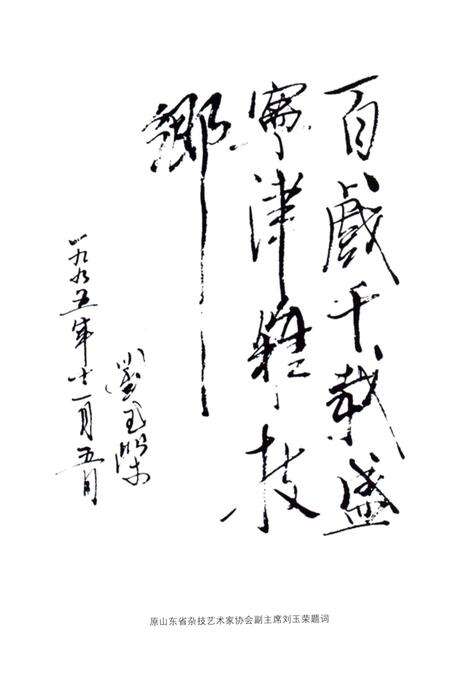 百戲千載盛
寧津雜技
鄉
一九九五年十一月五日
原山东省杂技艺术家协会副主席刘玉荣题词